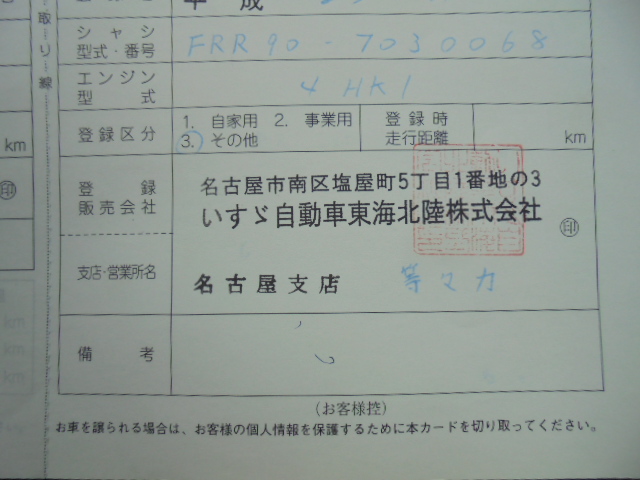 取り線
平成
シャシ
型式・番号
FRR90-7030068
エンジン
型式
4HK1
登録区分
1. 自家用 2. 事業用
3. その他
登録時
走行距離
km
km
登録
販売会社
名古屋市南区塩屋町5丁目1番地の3
いすゞ自動車東海北陸株式会社
印
印
支店・営業所名
名古屋支店
備考
km
km
km
(お客様控)
お車を譲られる場合は、お客様の個人情報を保護するために本カードを切り取ってください。